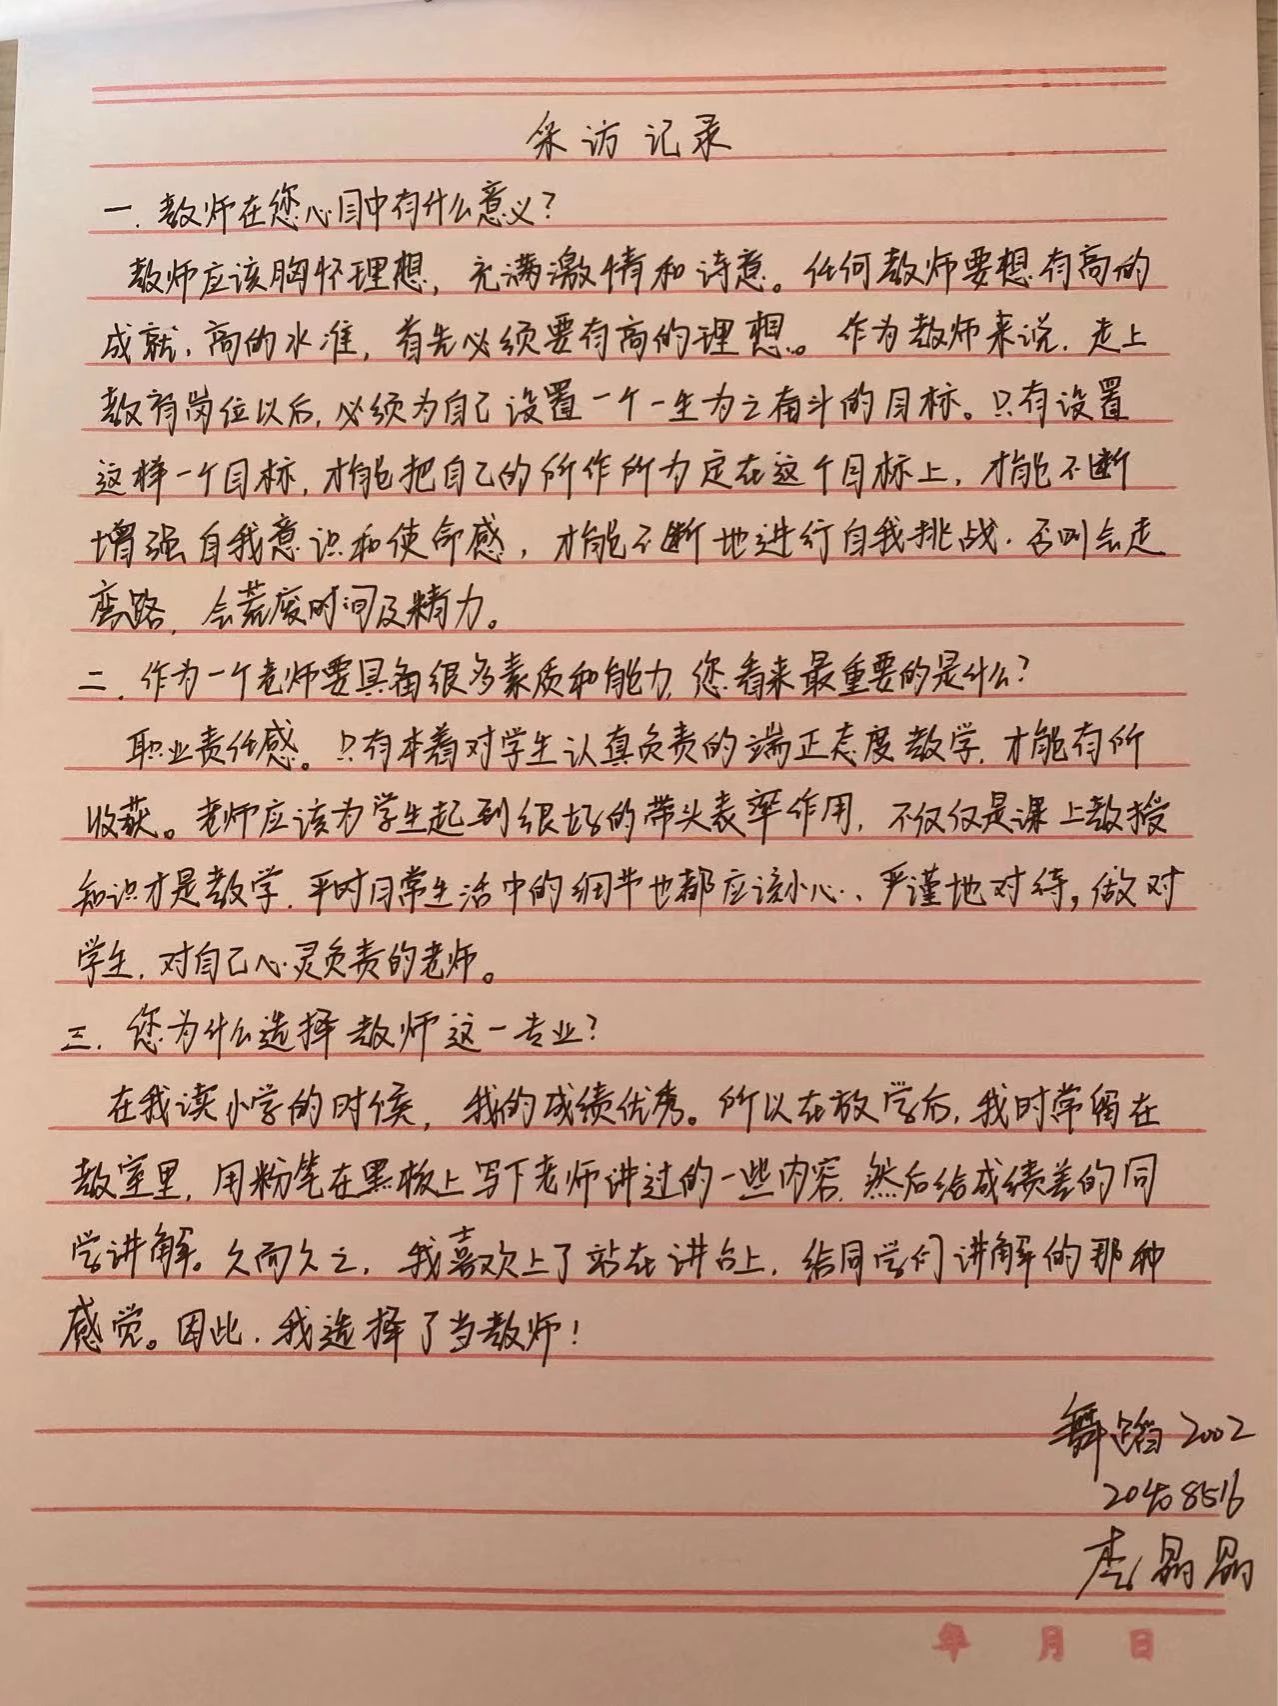 采访记录
一.教师在您心目中有什么意义？
教师应该胸怀理想，充满激情和诗意。任何教师要想有高的
成就、高的水准，首先必须要有高的理想。作为教师来说，走上
教育岗位以后，必须为自己设置一个一生为之奋斗的目标。只有设置
这样一个目标，才能把自己的所作所为定在这个目标上，才能不断
增强自我意识和使命感，才能不断地进行自我挑战，否则会走
弯路，会荒废时间及精力。
二.作为一个老师要具备很多素质和能力，您看来最重要的是什么？
职业责任感。只有本着对学生认真负责的端正态度教学，才能有所
收获。老师应该为学生起到很好的带头表率作用，不仅仅是课上教授
知识才是教学，平时日常生活中的细节也都应该小心、严谨地对待，做对
学生，对自己心灵负责的老师。
三.您为什么选择教师这一专业？
在我读小学的时候，我的成绩优秀。所以在放学后，我时常留在
教室里，用粉笔在黑板上写下老师讲过的一些内容，然后给成绩差的同
学讲解。久而久之，我喜欢上了站在讲台上，给同学们讲解的那种
感觉。因此，我选择了当教师！
舞蹈2002
李晶晶
年 月 日